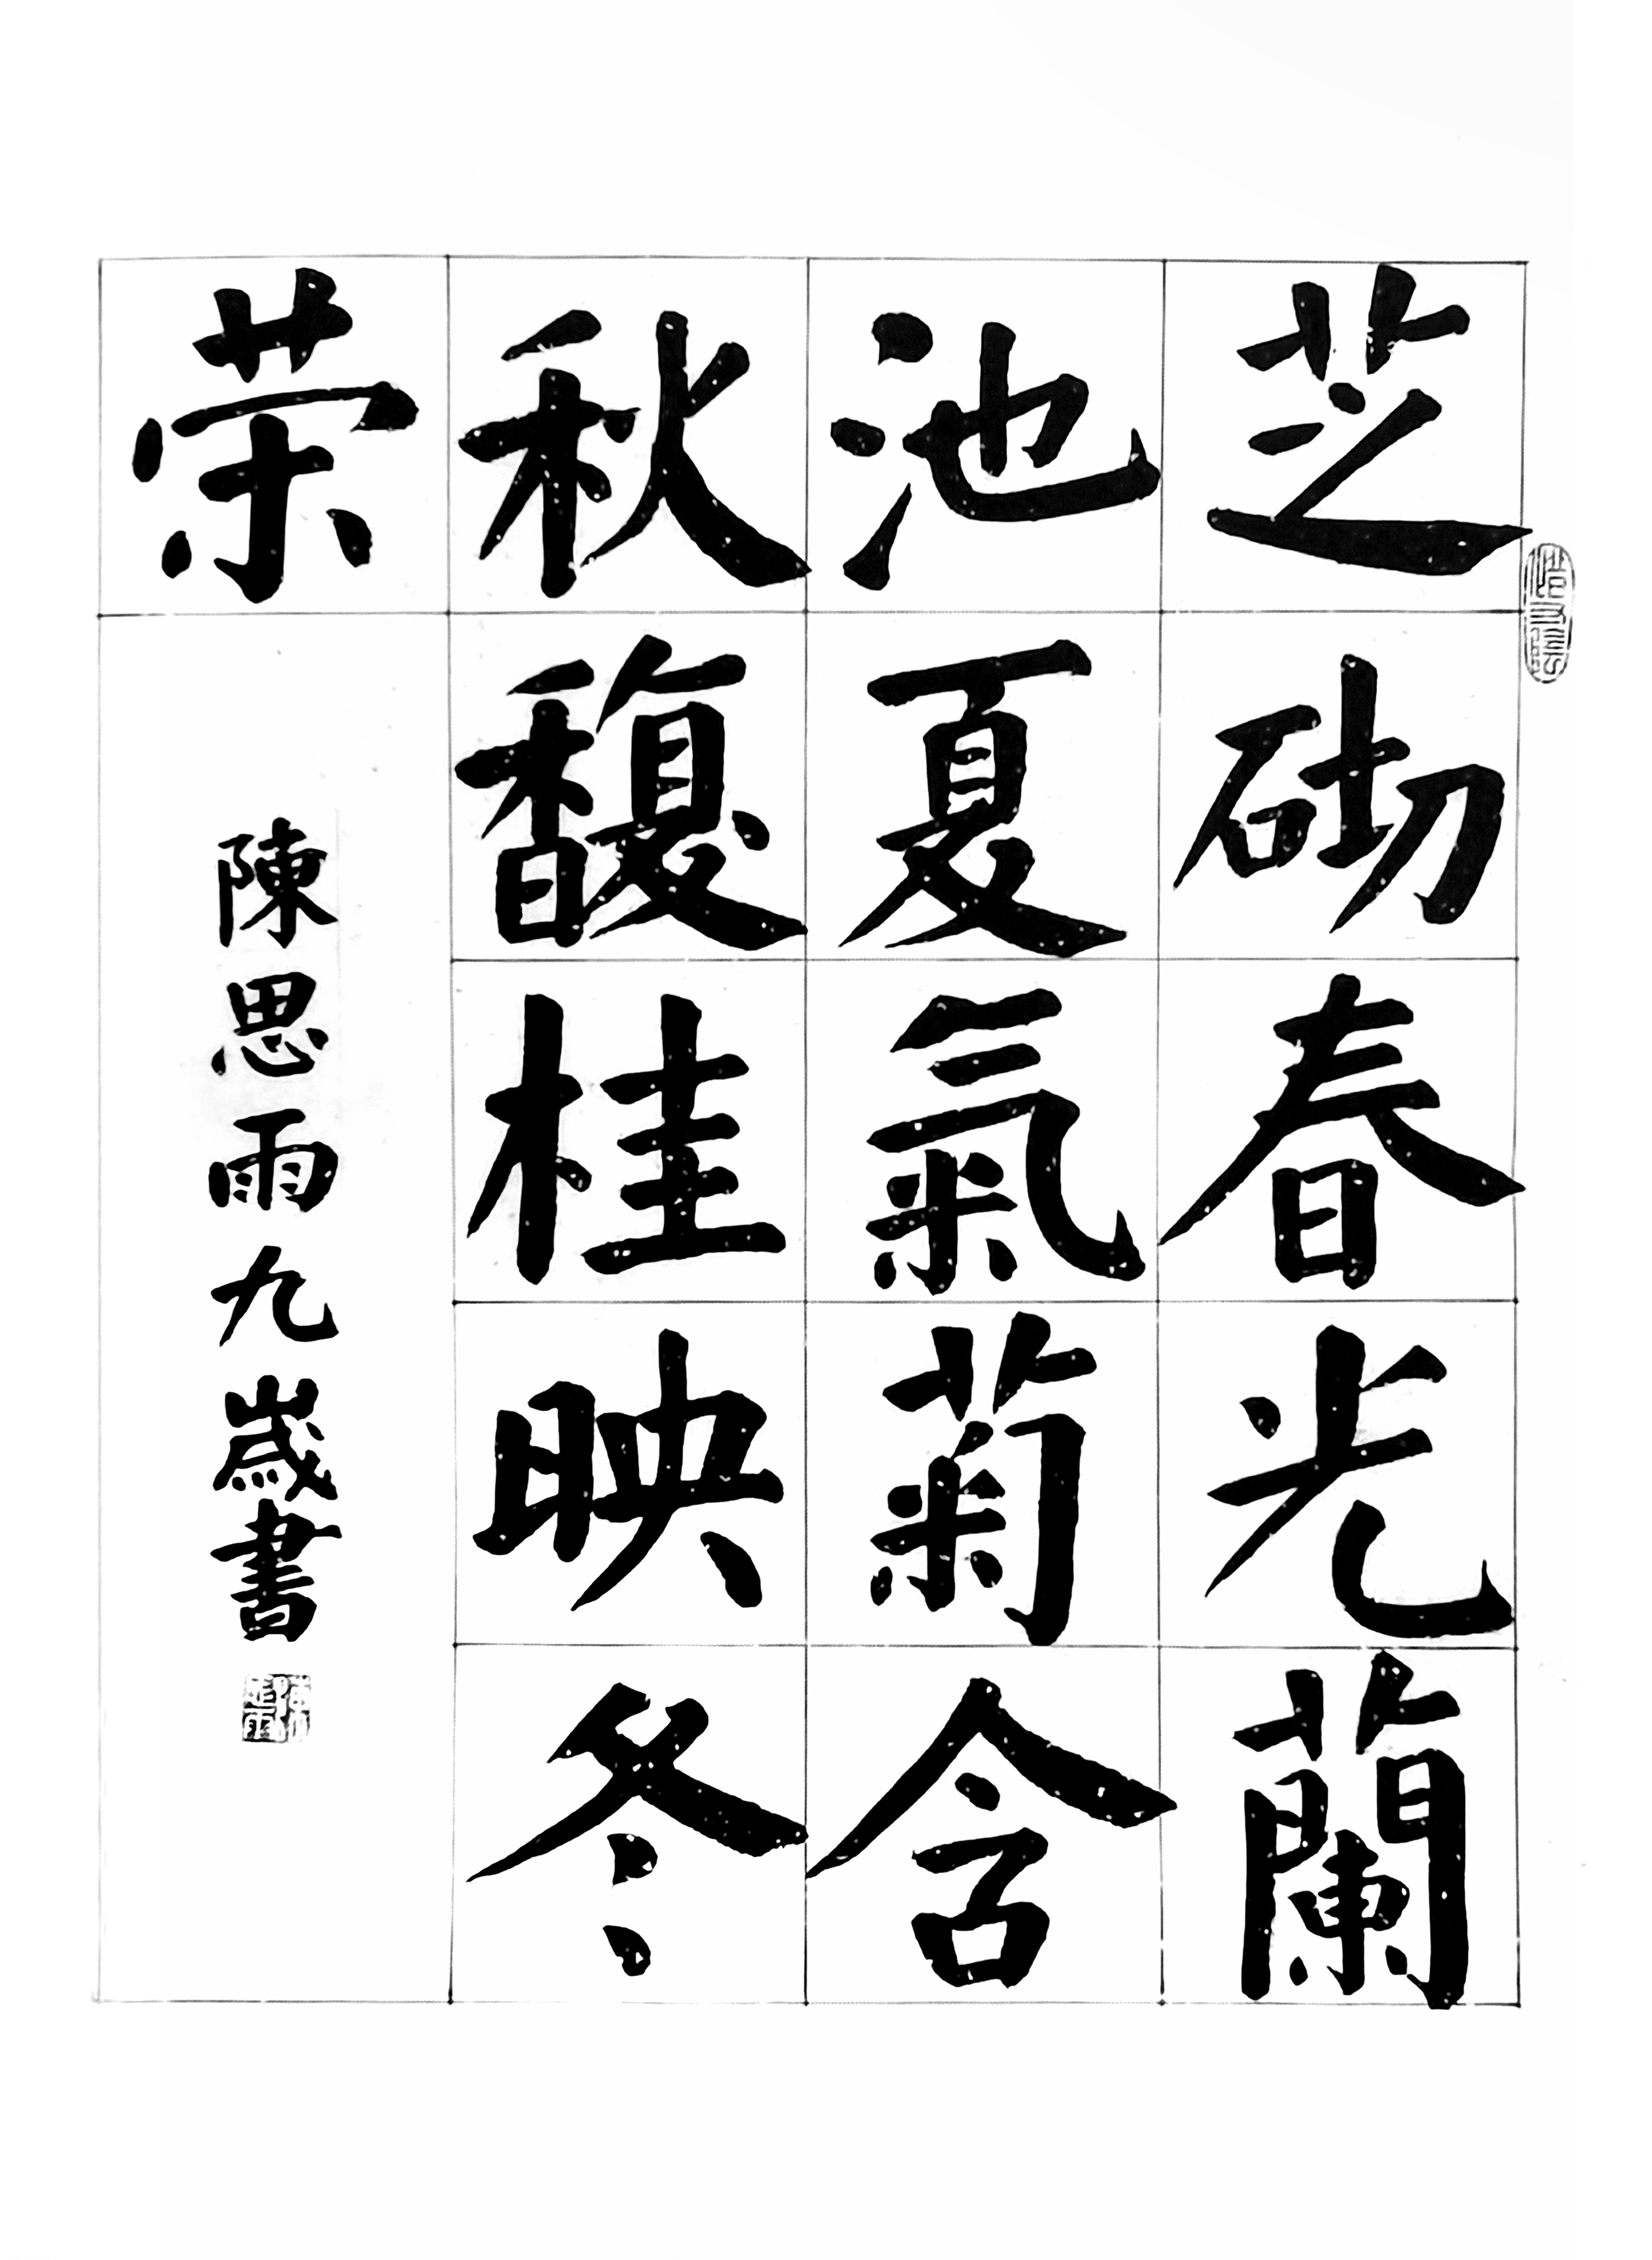 芝砌春光蘭
池夏氣菊含
秋馥桂映冬
荣
陳思雨九歳書